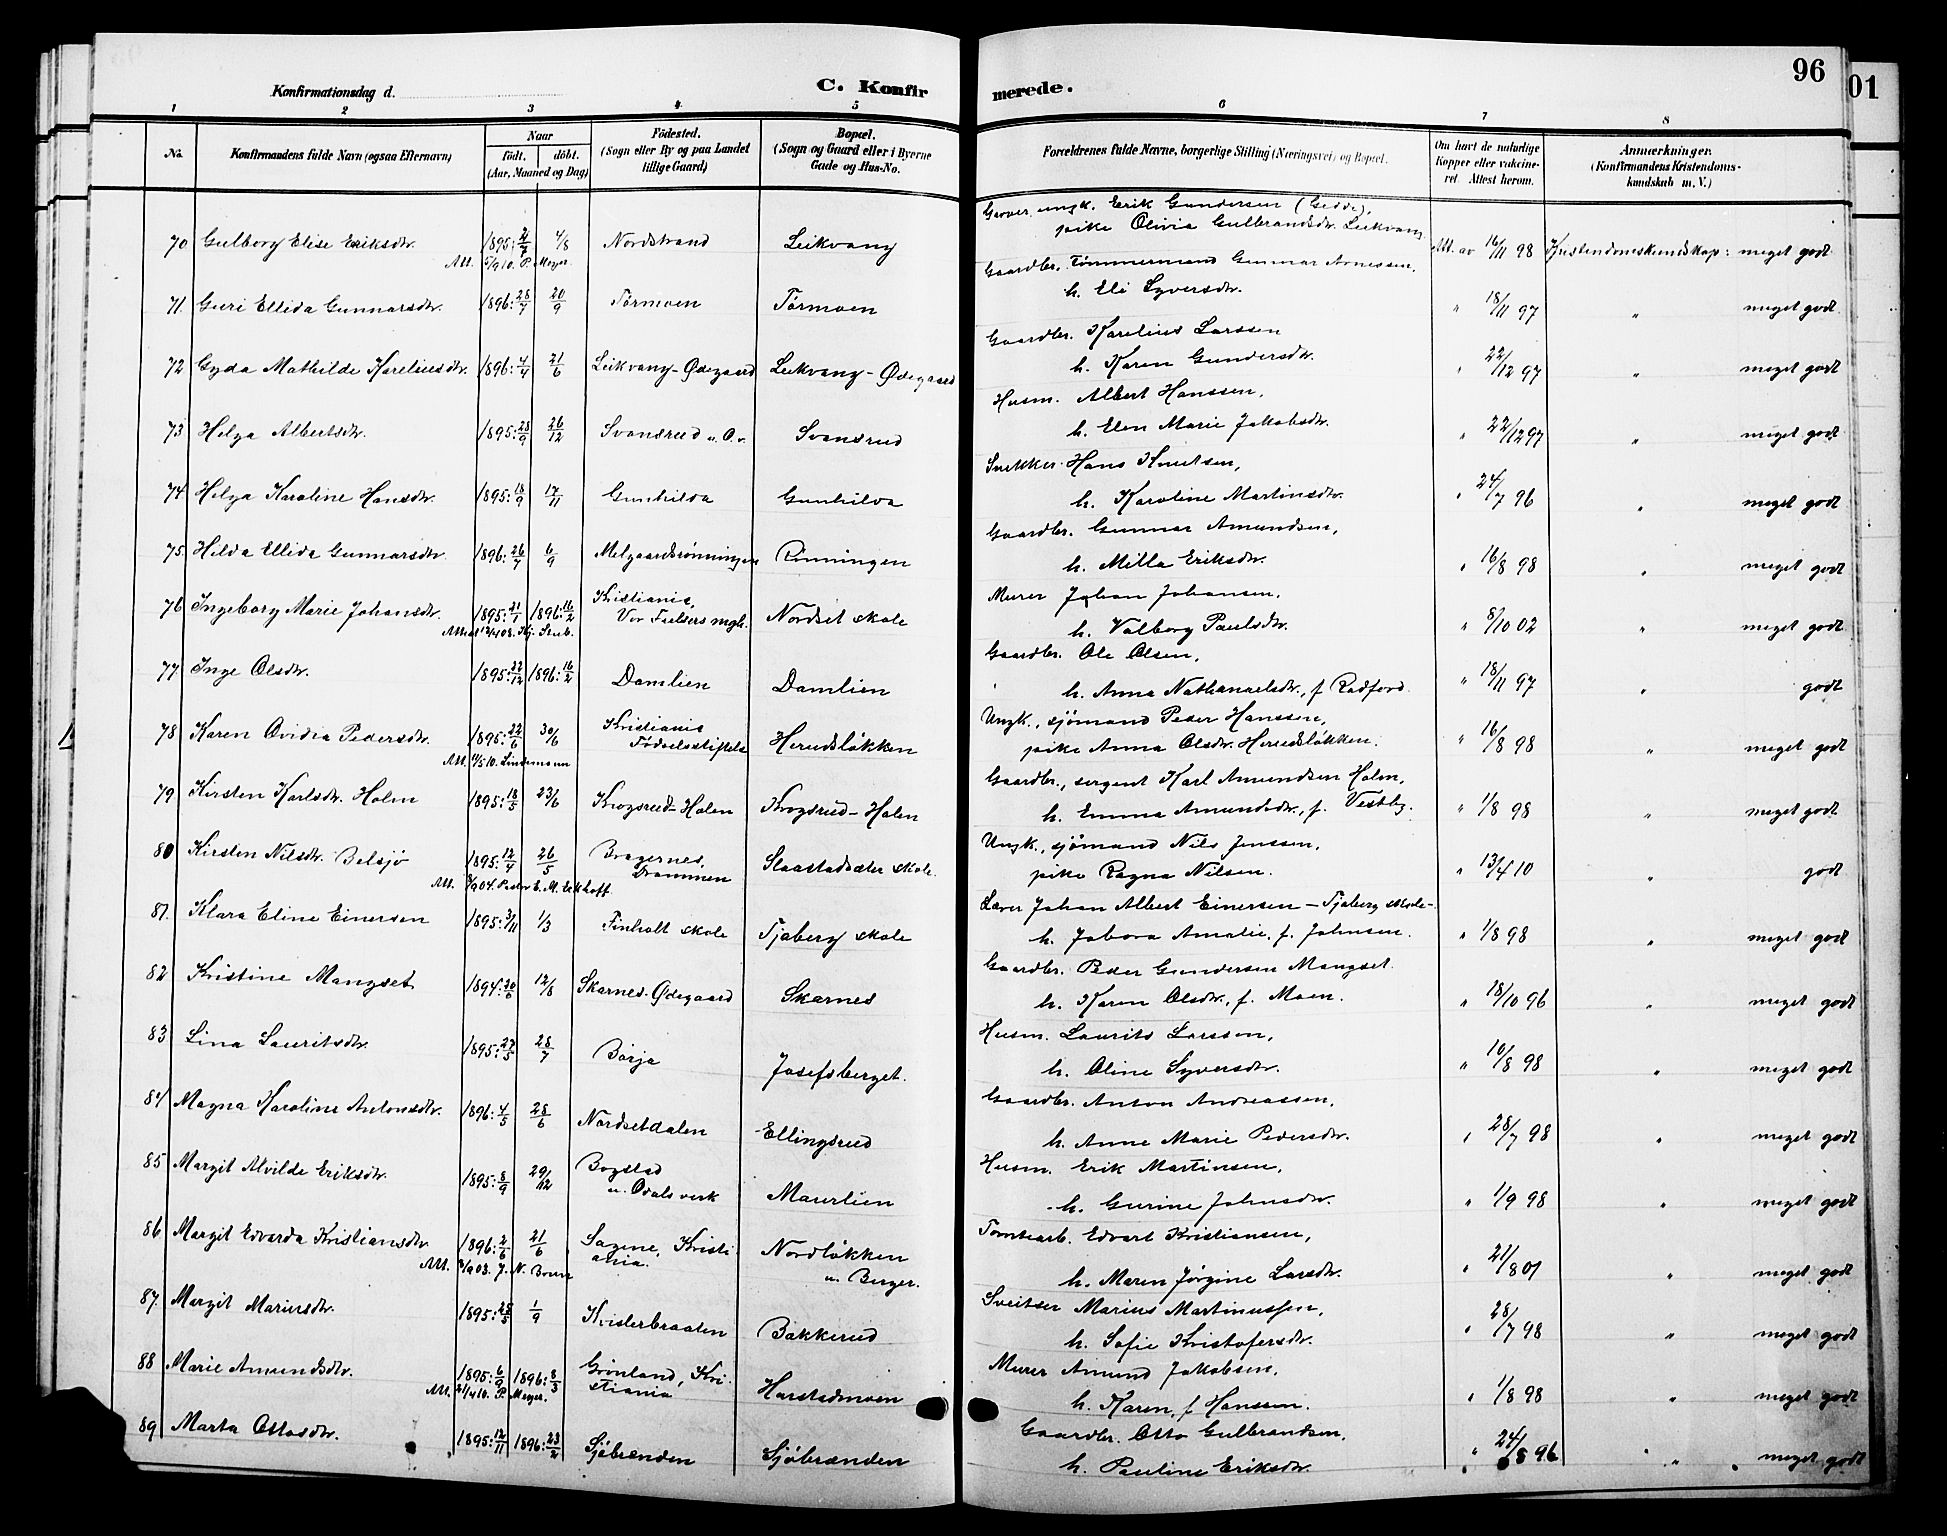 96
01
Konfirmationsdag d.
C. Konfirmerede.
1 2 3 4 5 6 7 8
No. Konfirmandens fulde Navn (ogsaa Efternavn) Naar født. døbt. (Aar, Maaned og Dag) Fødested. (Sogn eller By og paa Landet tillige Gaard) Bopæl. (Sogn og Gaard eller i Byerne Gade og Hus-No. Forældrenes fulde Navne, borgerlige Stilling (Næringsvei) og Bopæl. Om havt de naturlige Kopper eller vaccineret Attest herom. Anmærkninger. (Konfirmandens Kristendomskundskab m. V.)
ungk. Erik Gundersen (Gedde),
70 Gulborg Elise Eriksdtr. 1895: 4/8 Nordstrand Leikvang pike Olivia Gulbrandsdtr. Leikvang Att. av 16/11 98 Kristendomskundskap: meget godt
Att. 5/9 10. P. Meyer.
Gaardbr. Tømmermand Gunnar Arnessen,
71 Guri Ellida Gunnarsdtr. 1896: 28/7 20/9 Tørmoen Tørmoen h. Eli Syversdtr. " 18/11 97 " meget godt
Gaardbr. Karelius Larssen
72 Gyda Mathilde Kareliusdtr. 1896: 4/4 21/6 Leikvang-Ødegaard Leikvang-Ødegaard h. Karen Gundersdtr. " 22/12 97 " meget godt
Husm. Albert Hanssen,
73 Helga Albertsdtr. 1895: 28/9 26/12 Svensrud u. O. Svensrud h. Elen Marie Jakobsdtr. " 22/12 97 " meget godt
Snekker Hans Knutsen,
74 Helga Karoline Hansdtr. 1895: 18/9 17/11 Gunhilda Gunhilda h. Karoline Martinsdtr. " 24/7 96 " meget godt
Gaardbr. Gunnar Amundsen,
75 Hilda Ellida Gunnarsdtr. 1896: 26/7 6/9 Melgaardsrønningen Rønningen h. Milla Eriksdtr. " 16/8 98 " meget godt
Murer Johan Johansen,
76 Ingeborg Marie Johansdtr. 1895: 21/1 1896: 16/2 Kristiania, Vor Frelsers mgh. Nordset skole h. Valborg Paulsdtr. " 8/10 02 " meget godt
Gaardbr. Ole Olsen,
77 Inge Olsdtr. 1895: 22/12 1896: 16/2 Damlien Damlien h. Anna Nathanaelsdtr., f. Radford. " 18/11 97 " godt
Ungk., sjømand Peder Hanssen,
78 Karen Ovidia Pedersdtr. 1895: 22/6 30/6 Kristiania Fødselsstiftelse Herudsløkken pike Anna Olsdtr. Herudsløkken. " 16/8 98 " meget godt
Att. 11/5 10. Lindemann
Gaardbr., sergent Karl Amundsen Holm,
79 Kirsten Karlsdtr. Holm 1895: 18/5 23/6 Krogsrud-Holen Krogsrud-Holen h. Emma Amundsdtr., f. Vestby. " 1/8 98 " meget godt
Ungk., sjømand Nils Jenssen,
80 Kirsten Nilsdtr. Belsjø 1895: 12/4 26/5 Bragernes, Drammen Slaastadsæter skole. pike Ragna Nilsen. " 13/4 10 " godt
Att. 3/9 04. Peder E. M. Eckhoff
Lærer Johan Albert Einersen - Tjaberg skole -
81. Klara Eline Einersen 1895: 3/11 1/3 Finholt skole Tjaberg skole h. Jabora Amalie, f. Johnsen. " 1/8 98 " meget godt
Gaardbr. Peder Gundersen Mangset.
82 Kristine Mangset 1894: 20/6 12/8 Skarnes-Ødegaard Skarnes h. Karen Olsdtr., f. Moen. " 18/10 96 " meget godt
Husm. Laurits Larssen,
83 Lina Lauritsdtr. 1895: 27/5 28/7 Børja Josefsberget. h. Oline Syversdtr. " 10/8 98 " meget godt
Gaardbr. Anton Andreassen,
84 Magna Karoline Antonsdtr. 1896: 4/5 28/6 Nordsetdalen Ellingsrud h. Anne Marie Pedersdtr. " 28/7 98 " meget godt
Husm. Erik Martinsen,
85 Margit Alvilde Eriksdtr. 1895: 8/9 29/12 Bogstad u. Odals verk Maurlien h. Gurine Johnsdtr. " 1/9 98 " meget godt
Tomtearb. Edvart Kristiansen,
86 Margit Edvarda Kristiansdtr. 1896: 2/6 21/6 Sagene, Kristiania. Nordløkken u. Berger. h. Maren Jørgine Larsdtr. " 21/8 01 " meget godt
Sveitser Marius Martinussen,
87. Margit Mariusdtr. 1895: 28/5 1/9 Kvisterbraaten Bakkerud h. Sofie Kristofersdtr. " 28/7 98 " meget godt
Murer Amund Jakobsen,
88 Marie Amundsdtr. 1895: 6/9 1896: 8/3 Grønland, Kristiania Harstadmoen h. Karen, f. Hanssen. " 1/8 98 " meget godt
Att. 21/4 10. P. Meyer.
Gaardbr. Otto Gulbrandsen,
89 Marta Ottosdtr. 1895: 12/11 1896: 23/2 Sjøbrænden Sjøbrænden h. Pauline Eriksdtr. " 24/8 96 " meget godt